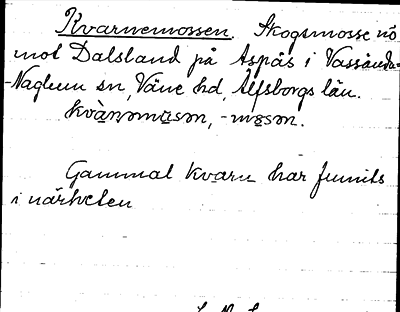 Kvarnemossen. Skogsmosse nö
mot Dalsland på Aspås i Vassända-
-Naglum sn, Väne hd, Älfsborgs län.
kvàṇəmɯsən, -mɵsən.
Gammal kvarn har funnits
i närheten